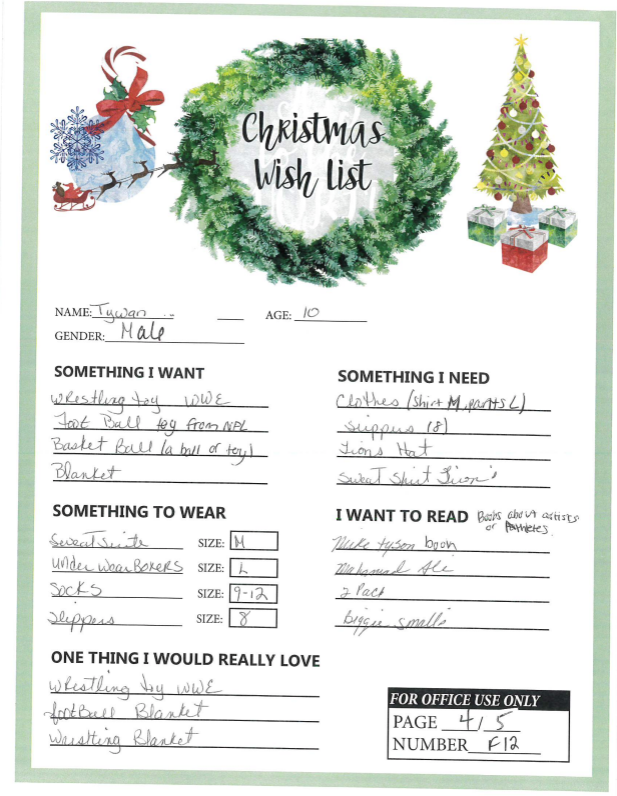 Christmas
Wish List
NAME: Tywan
AGE: 10
GENDER: Male
SOMETHING I WANT
Wrestling toy WWE
Foot Ball toy from NFL
Basket Ball (a ball or toy)
Blanket
SOMETHING I NEED
Clothes (shirt M, pants L)
Slippers (8)
Lions Hat
Sweat Shirt Lion's
SOMETHING TO WEAR
SweatSuite SIZE: M
Under Wear Boxers SIZE: L
Socks SIZE: 9-12
Slippers SIZE: 8
I WANT TO READ Books about artists
or Athletes
Mike tyson book
Mahamad Ale
2 Pack
Biggie Smalls
ONE THING I WOULD REALLY LOVE
Wrestling toy WWE
football Blanket
Wrestling Blanket
FOR OFFICE USE ONLY
PAGE 4/5
NUMBER F12